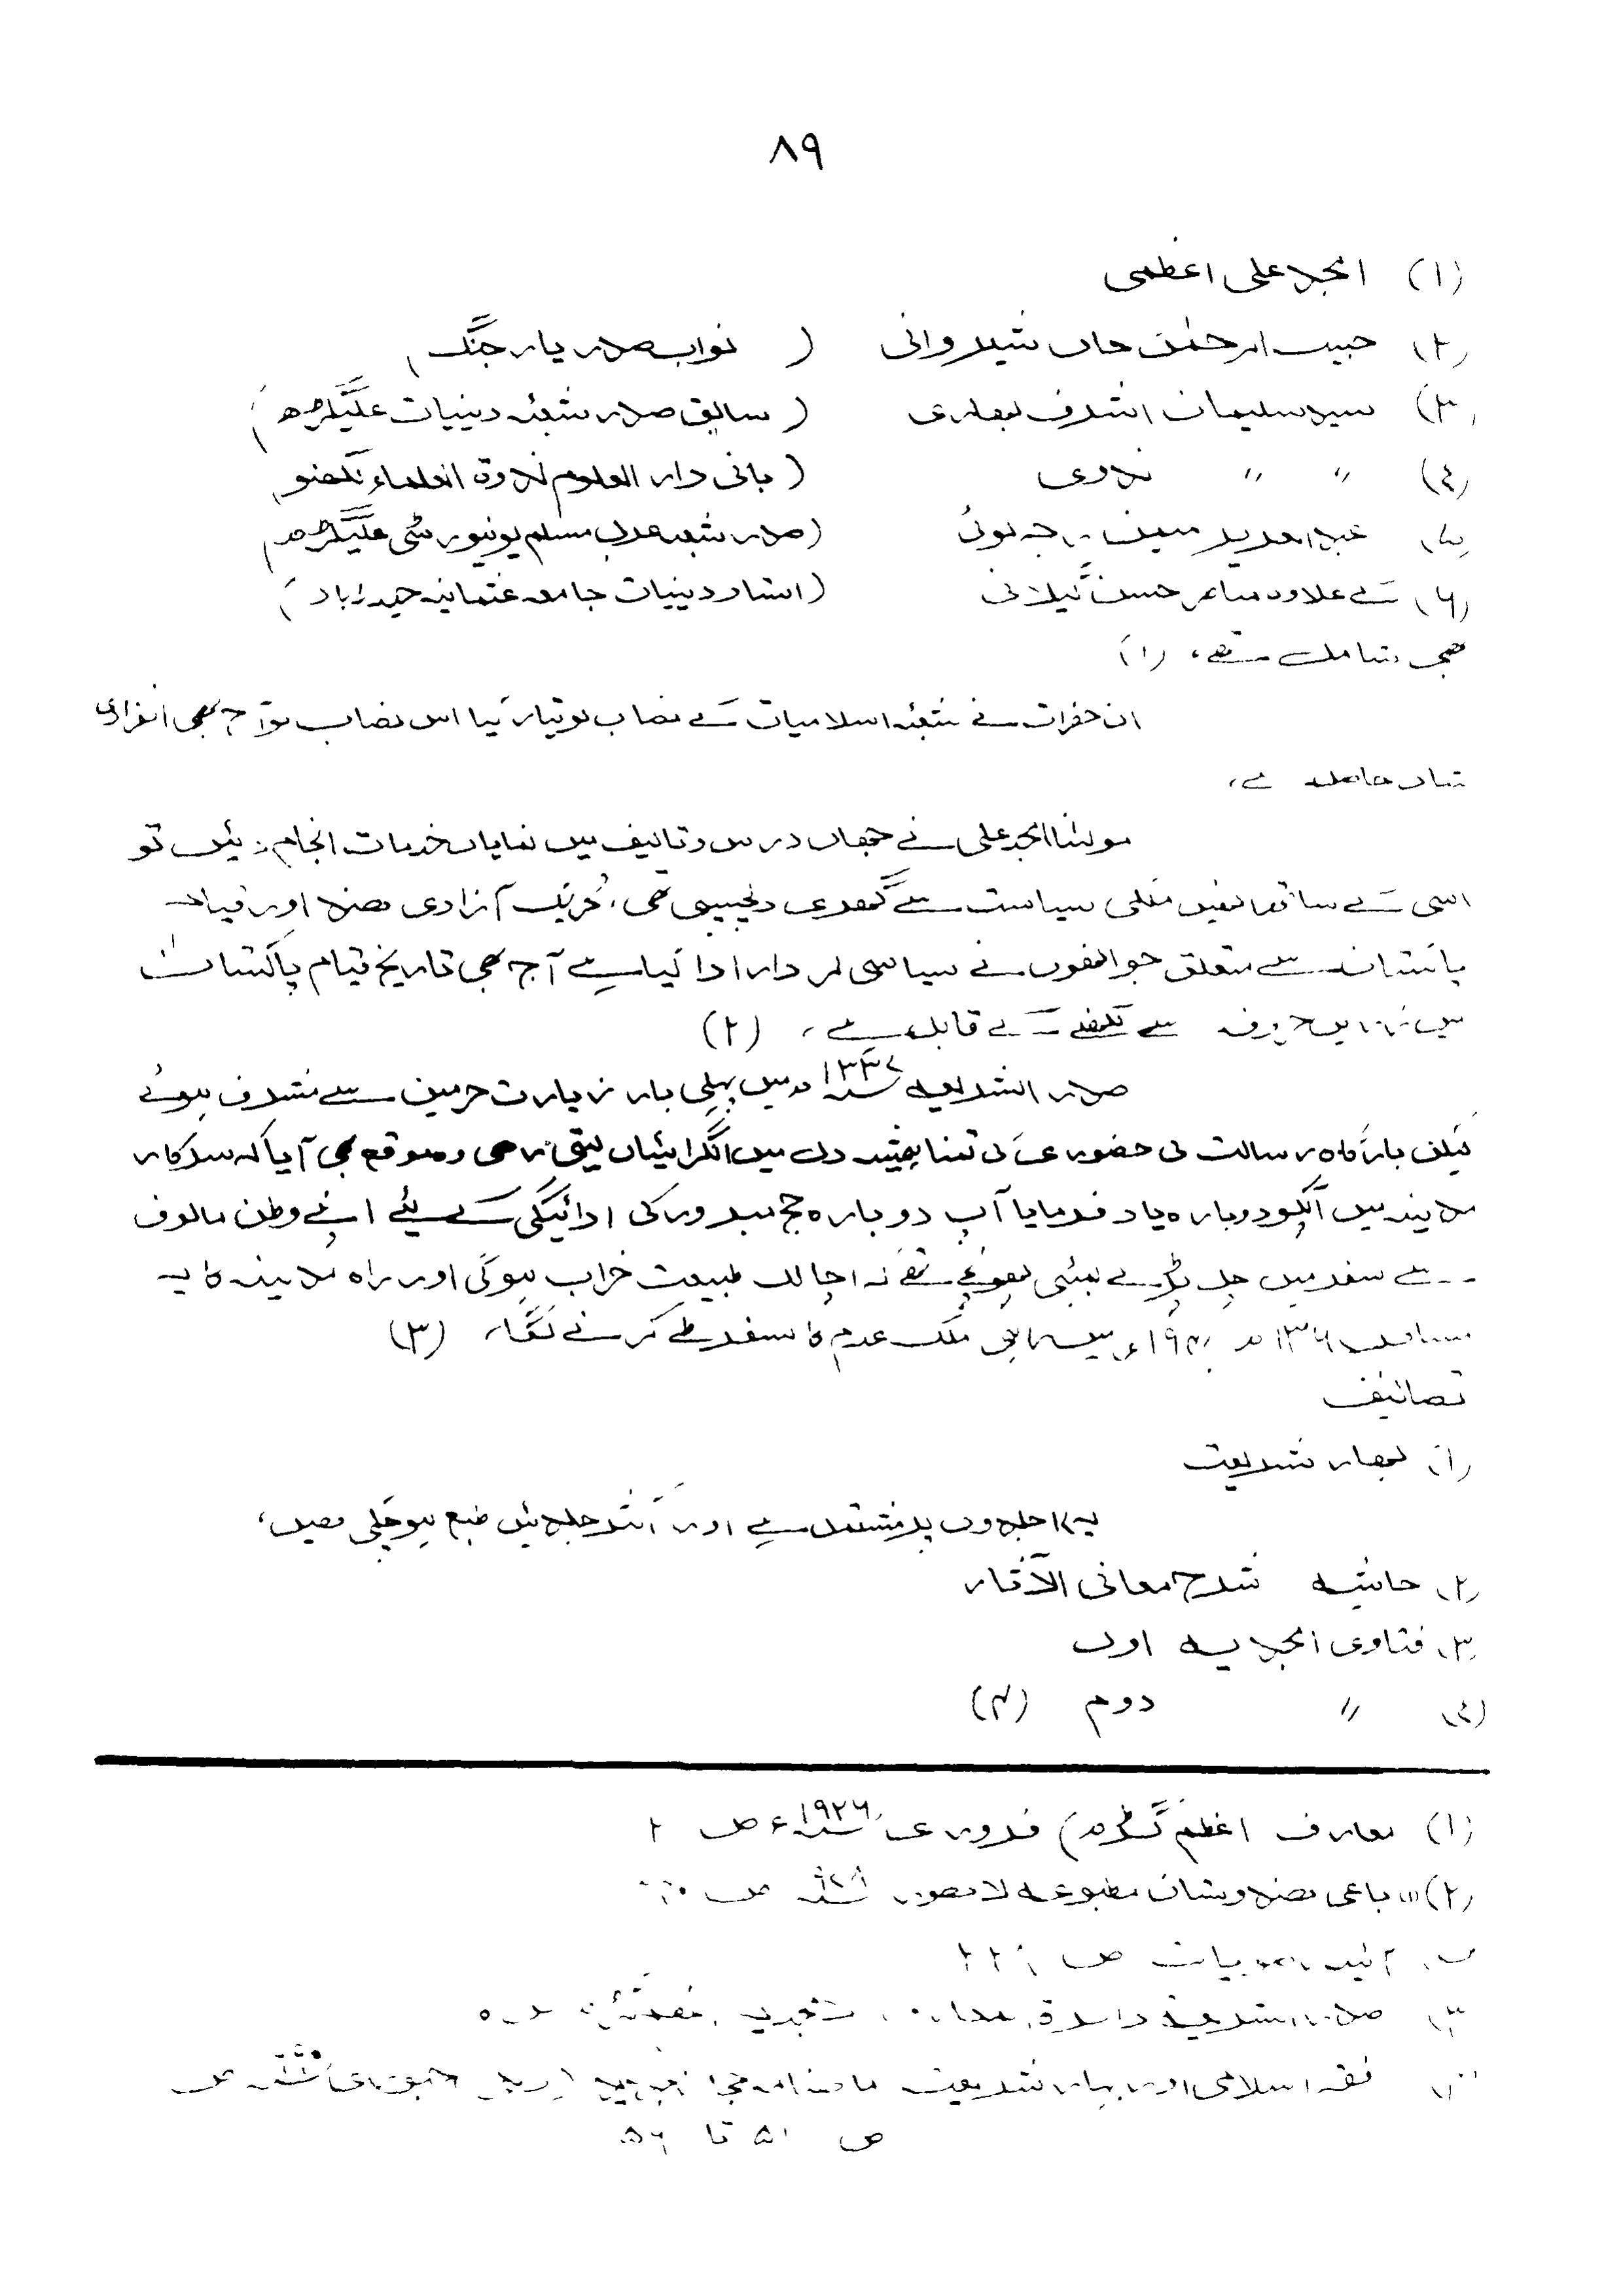 ۸۹
(۱) امجد علی اعظمی
(۲) حبیب الرحمٰن خاں شیروانی ( نواب صدر یار جنگ )
(۳) سید سلیمان اشرف بہاری ( سابق صدر شعبۂ دینیات علیگڑھ )
(۴) " " ندوی ( بانی دار العلوم ندوۃ العلماء لکھنو )
(۵) عبد العزیز میمن راجکوٹی ( صدر شعبہ عربی مسلم یونیورسٹی علیگڑھ )
(۶) کے علاوہ مناظر حسن گیلانی ( استاد دینیات جامعہ عثمانیہ حیدرآباد )
بھی شامل تھے، (۱)
ان حضرات نے شعبۂ اسلامیات کے نصاب کو تیار کیا اس نصاب کو آج بھی انفرادی
شان حاصل ہے،
مولٰنا امجد علی نے جہاں درس و تالیف میں نمایاں خدمات انجام دئیں تو
اسی کے ساتھ انہیں ملکی سیاست سے گہری دلچسپی تھی، تحریک آزادی ہند اور قیام
پاکستان سے متعلق جو انھوں نے سیاسی کردار ادا کیا ہے آج بھی تاریخ قیام پاکستان
میں زریں حروف سے لکھنے کے قابل ہے، (۲)
صدر الشریعہ ۱۳۳۷ھ میں پہلی بار زیارت حرمین سے مشرف ہوئے
لیکن بارگاہ رسالت کی حضوری کی تمنا ہمیشہ دل میں انگڑائیاں لیتی رہی وہ موقع بھی آیا کہ سرکار
مدینہ میں آپکو دوبارہ یاد فرمایا آپ دوبارہ حج مبرور کی ادائیگی کے لئے اپنے وطن مالوف
سے سفر میں چل پڑے بمبئی پہونچے تھے کہ اچانک طبیعت خراب ہوگئی اور راہ مدینہ کا یہ
میں راہی ملک عدم کا سفر طے کرنے لگا، (۳)
تصانیف
(۱) بہار شریعت
یہ ۱۷ جلدوں پر مشتمل ہے اور اکثر جلدیں طبع ہوچکی ہیں،
(۲) حاشیہ شرح معانی الآثار
(۳) فتاوی امجدیہ اول
(۴) " دوم (۴)
(۱) معارف اعظم گڑھ فروری ۱۹۲۶ء ص ۲
(۲) (۱) باغی ہندوستان مطبوعہ لاہور ص
ص
(۳) صدر الشریعہ
فقہ اسلامی اور بہار شریعت ماہنامہ
ص ۵۱ تا ۵۶